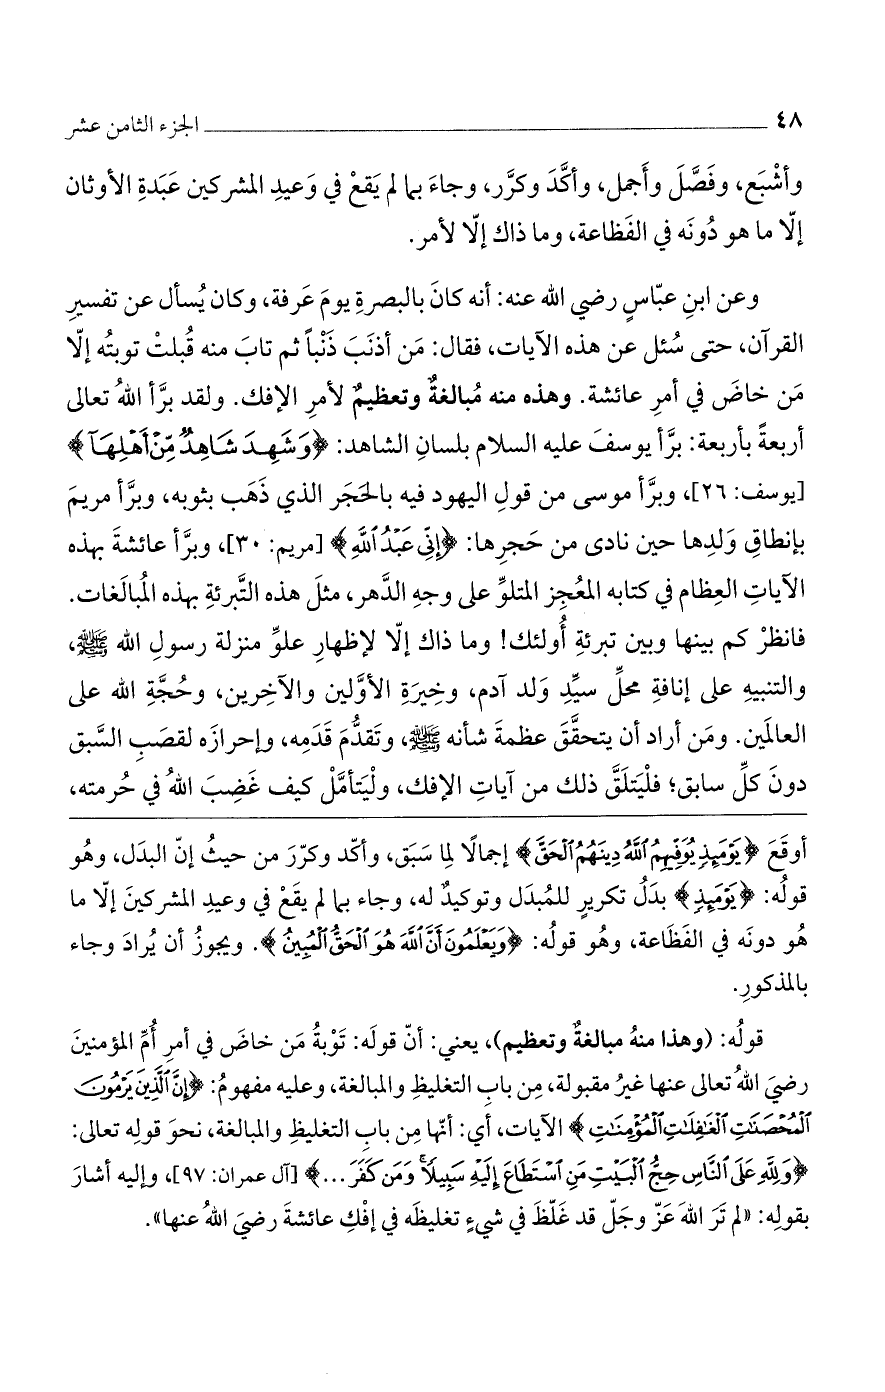 ٤٨ الجزء الثامن عشر
وأشْبَع، وفَصَّلَ وأَجمل، وأكَّدَ وكرَّر، وجاءَ بما لم يَقعْ في وَعيدِ المشركين عَبَدةِ الأوثان
إلّا ما هو دُونَه في الفَظاعة، وما ذاك إلّا لأمر.
وعن ابنِ عبّاسٍ رضي الله عنه: أنه كانَ بالبصرةِ يومَ عَرفة، وكان يُسأل عن تفسيرِ
القرآن، حتى سُئل عن هذه الآيات، فقال: مَن أذنَبَ ذَنْباً ثم تابَ منه قُبلتْ توبتُه إلّا
مَن خاضَ في أمرِ عائشة. وهذه منه مُبالغةٌ وتعظيمٌ لأمرِ الإفك. ولقد برَّأ اللهُ تعالى
أربعةً بأربعة: برَّأ يوسفَ عليه السلام بلسانِ الشاهد: ﴿وَشَهِدَ شَاهِدٌ مِّنْ أَهْلِهَآ﴾
[يوسف: ٢٦]، وبرَّأ موسى من قولِ اليهود فيه بالحَجَر الذي ذَهَب بثوبه، وبرَّأ مريمَ
بإنطاقِ وَلدِها حين نادى من حَجرِها: ﴿إِنِّي عَبْدُ ٱللَّهِ﴾ [مريم: ٣٠]، وبرَّأ عائشةَ بهذه
الآياتِ العِظام في كتابه المعْجِز المتلوِّ على وجهِ الدَّهر، مثلَ هذه التَّبرئةِ بهذه المُبالَغات.
فانظرْ كم بينها وبين تبرئةِ أُولئك! وما ذاك إلّا لإظهارِ علوِّ منزلة رسولِ الله ﷺ،
والتنبيهِ على إنافةِ محلِّ سيِّدِ وَلد آدم، وخِيرَةِ الأوَّلين والآخِرين، وحُجَّةِ الله على
العالَمين. ومَن أراد أن يتحقَّقَ عظمةَ شأنه ﷺ، وتَقدُّمَ قَدَمِه، وإحرازَه لقصَبِ السَّبق
دونَ كلِّ سابق؛ فلْيَتلَقَّ ذلك من آياتِ الإفك، ولْيَتأمَّلْ كيف غَضِبَ اللهُ في حُرمته،
أوقَعَ ﴿يَوْمَئِذٍ يُوَفِّيهِمُ ٱللَّهُ دِينَهُمُ ٱلْحَقَّ﴾ إجمالًا لِما سَبَق، وأكّد وكرّرَ من حيثُ إنّ البدَل، وهُو
قولُه: ﴿يَوْمَئِذٍ﴾ بدَلُ تكريرٍ للمُبدَل وتوكيدٌ له، وجاء بما لم يقَعْ في وعيدِ المشركينَ إلّا ما
هُو دونَه في الفَظَاعة، وهُو قولُه: ﴿وَيَعْلَمُونَ أَنَّ ٱللَّهَ هُوَ ٱلْحَقُّ ٱلْمُبِينُ﴾. ويجوزُ أن يُرادَ وجاء
بالمذكورِ.
قولُه: (وهذا منهُ مبالغةٌ وتعظيم)، يعني: أنّ قولَه: تَوْبةُ مَن خاضَ في أمرِ أُمِّ المؤمنينَ
رضيَ اللهُ تعالى عنها غيرُ مقبولة، مِن بابِ التغليظِ والمبالغة، وعليه مفهومُ: ﴿إِنَّ ٱلَّذِينَ يَرْمُونَ
ٱلْمُحْصَنَٰتِ ٱلْغَٰفِلَٰتِ ٱلْمُؤْمِنَٰتِ﴾ الآيات، أي: أنّها مِن بابِ التغليظِ والمبالغة، نحوَ قولِه تعالى:
﴿وَلِلَّهِ عَلَى ٱلنَّاسِ حِجُّ ٱلْبَيْتِ مَنِ ٱسْتَطَاعَ إِلَيْهِ سَبِيلًا ۚ وَمَن كَفَرَ ...﴾ [آل عمران: ٩٧]، وإليه أشارَ
بقولِه: «لم تَرَ اللهَ عَزّ وجَلّ قد غَلّظَ في شيءٍ تغليظَه في إفْكِ عائشةَ رضيَ اللهُ عنها».